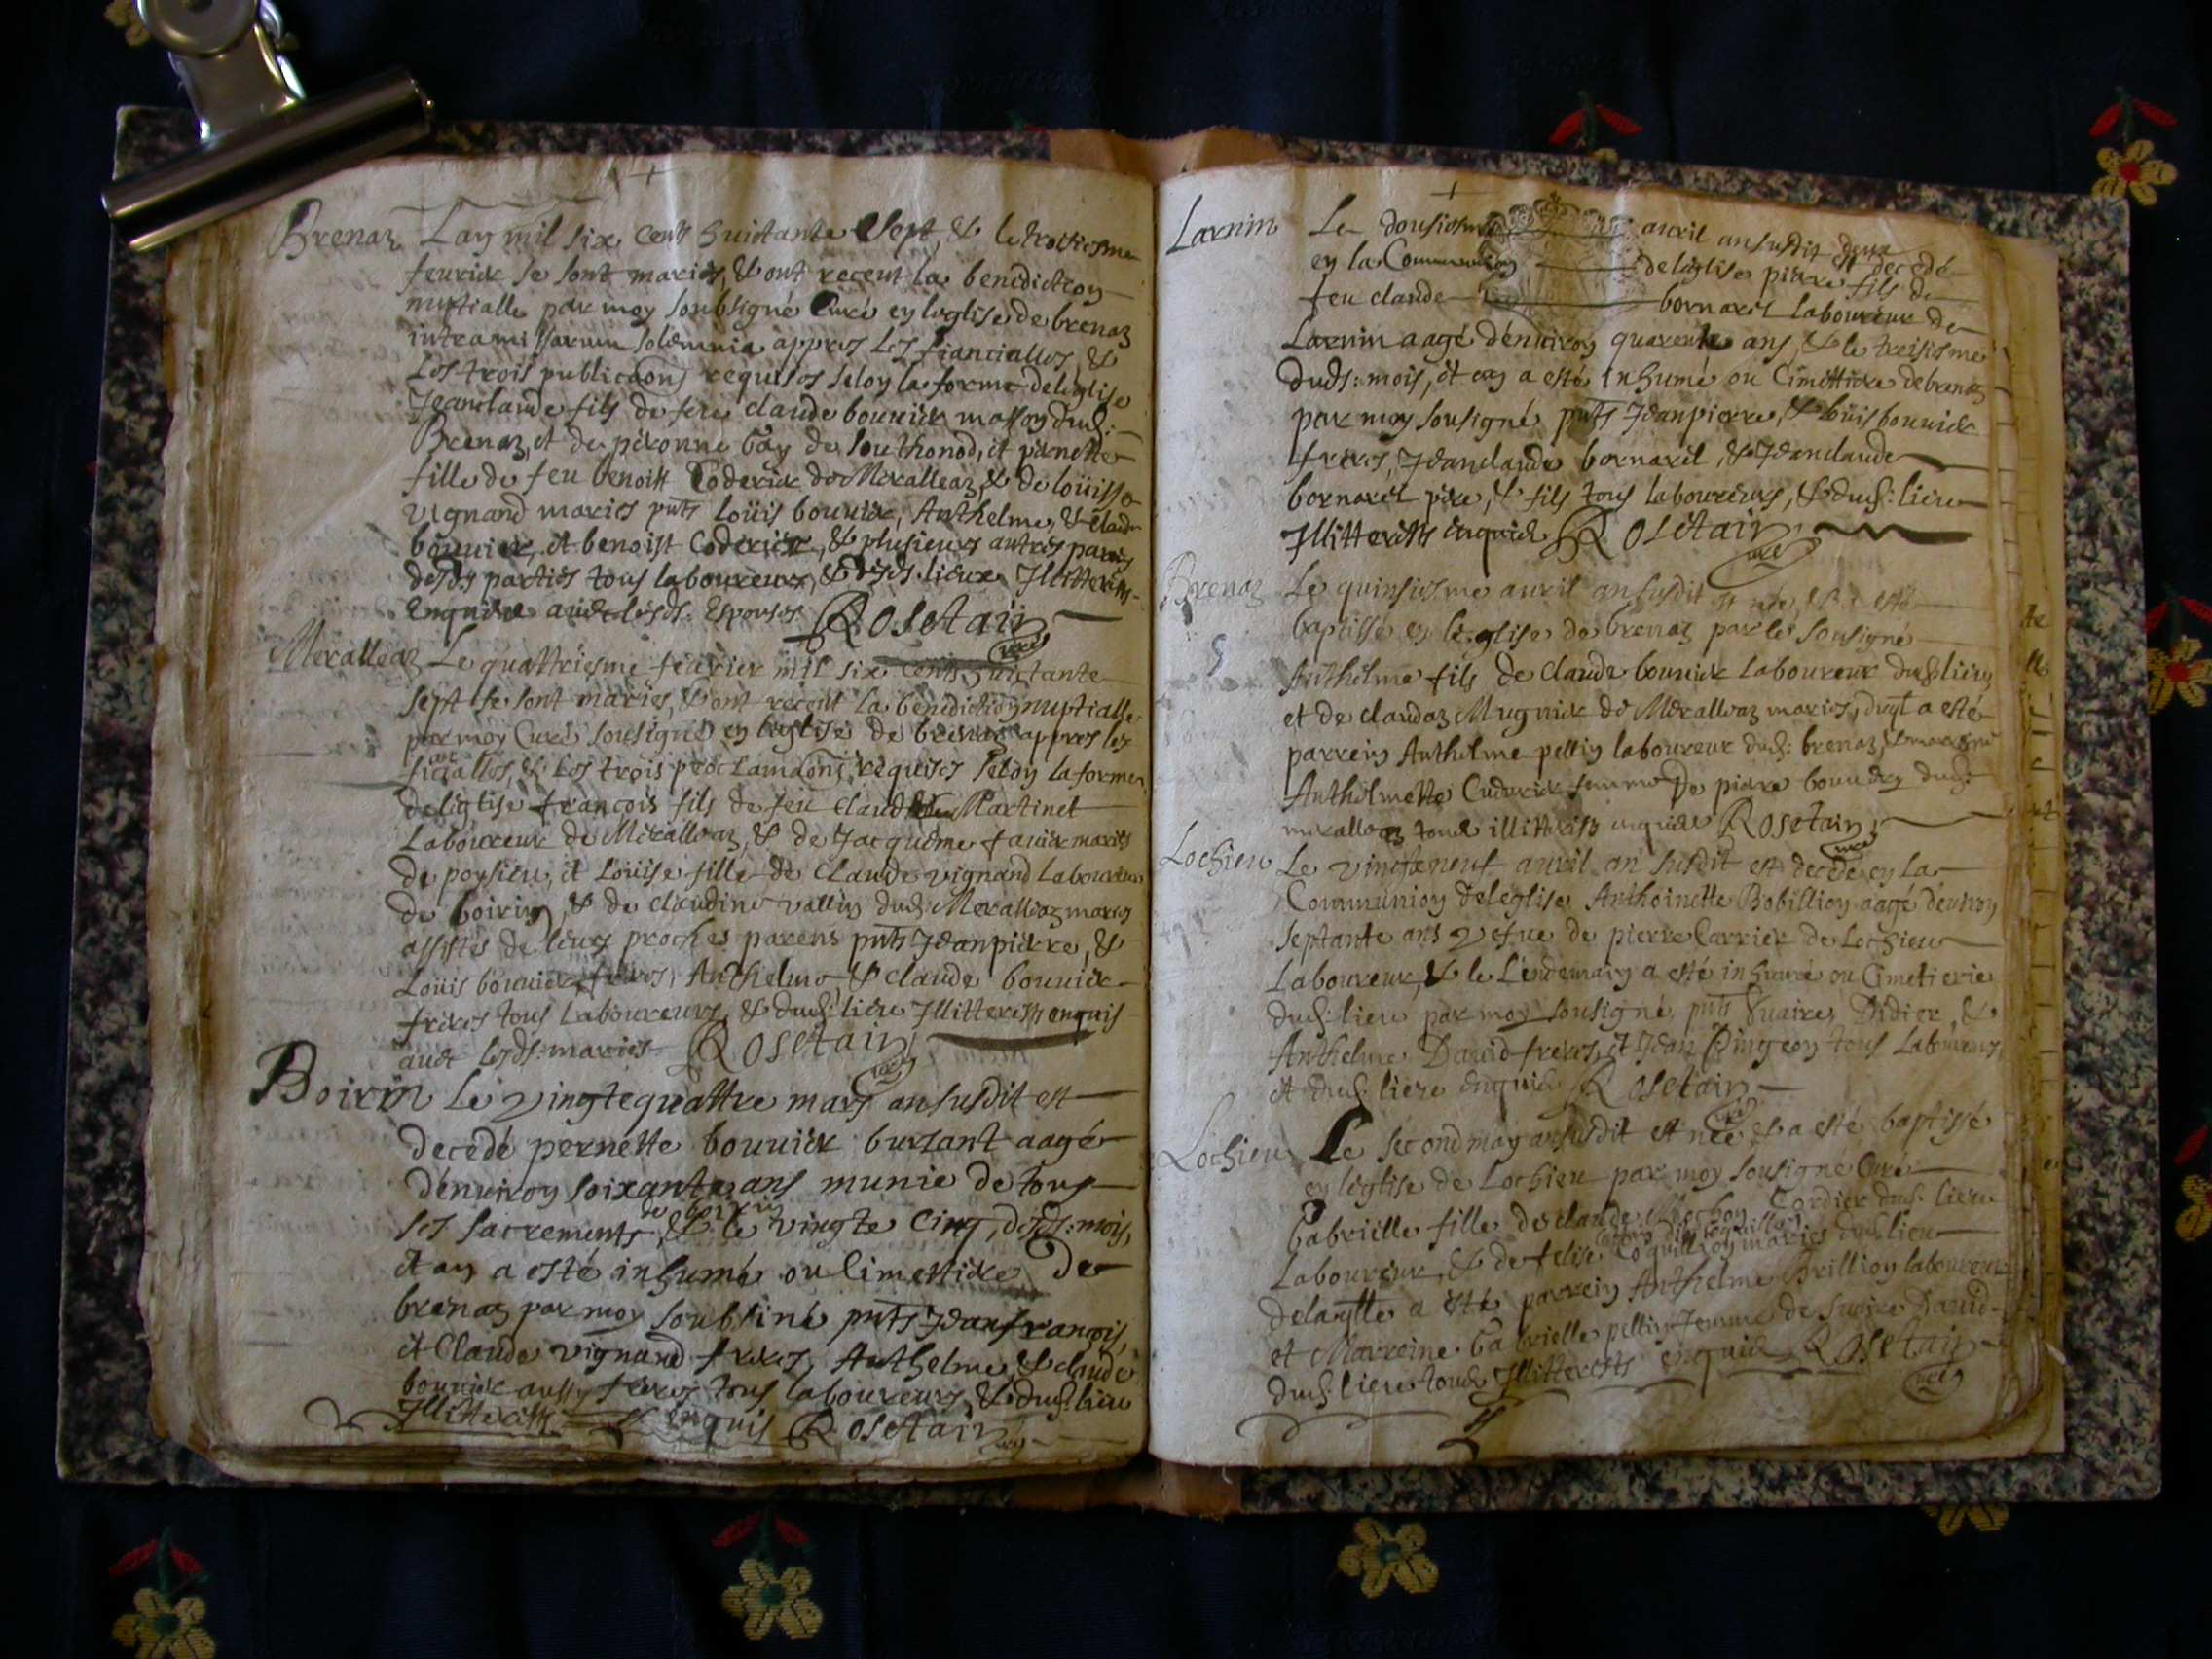 Brenaz Lan mil six cents huictante sept, & le troisiesme
feurier se sont mariés, & ont receut la benediction
nuptialle par moy soubsigné Curé en leglise de brenaz
intra missarum solemnia appres les fiancialles, &
les trois publicaons requises selon la forme deleglise
Jeanclaude fils de feu claude bouuier masson dud:
Brenaz, et de peronne Gay de Southonod, et pernette
fille de feu benoist Coderier de Meralleaz, & de loüisse
vignand mariés pnts Loüis bouuier, Anthelme, & claude
bouuier, et benoist Coderier, & plusieurs autres parens
desds parties tous laboureurs, & desds. lieux Illitterés
Enquis auec lesds. Espouses Rosetain curé
Meralleaz Le quattriesme feurier mil six cents huictante
sept se sont mariés, & ont receut la benediction nuptialle
par moy Curé sousigné en leglise de brenaz appres les
fiancialles, & les trois proclamaons requises selon la forme
deleglise françois fils de feu Claude Martinet
Laboureur de Meralleaz, & de Jacqueme fauier mariés
de poysieu, et Loüise fille de Claude vignand Laboureur
de boirin, & de claudine vallin dud: Meralleaz mariés
assistés de leurs proches parens pnts Jeanpierre, &
Loüis bouuier freres, Anthelme, & claude bouuier
freres tous Laboureurs, & dud: lieu Illitterés enquis
auec lesds: mariés Rosetain curé
Boirin Le vingtequattre mars an susdit est
decedé pernette bouuier burzant aagé
d'enuiron soixante ans munie de tous
de boirin
ses sacrements, & le vingte cinq, desds: mois,
et an a esté inhumé ou Cimettiere de
brenaz par moy soubsiné pnts Jeanfrançois,
et Claude vignand freres, Anthelme, & claude
bouuier aussy freres tous laboureurs, & dud: lieu
Illitterés enquis Rosetain curé
Larnin Le dousiesme auril an susdit est decedé
en la Communion deleglise pierre fils de
feu claude bornarel Laboureur de
Larnin aagé d'enuiron quarente ans, & le treisisme
duds: mois, et an a esté inhumé ou Cimettiere de brenaz
par moy sousigné pnts Jeanpierre, & loüis bouuier
freres, Jeanclaude bornarel, & Jeanclaude
bornarel pere, & fils tous laboureurs, & dud: lieu
Illitterés enquis Rosetain curé
Brenaz Le quinsiesme auril an susdit est née, & a esté
baptissé en leglise de brenaz par le sousigné
Anthelme fils de Claude bouuier Laboureur dud: lieu,
et de claudaz Mugnier de Meralleaz mariés, duqt a esté
parrein Anthelme pellin laboureur dud: brenaz, & marreine
Anthelmette Cuderier femme de pierre dud:
meralleaz tous illitterés enquis Rosetain curé
Lochieu Le vingteneuf auril an susdit est decedé en la
Communion deleglise Anthoinette Bobillion aagé d'enuiron
septante ans vefue de pierre Carrier de Lochieu
Laboureur, & le Lendemain a esté inhumé ou Cimetiere
dud: lieu par moy sousigné, pnts Suaire, Didier, &
Anthelme Dauid freres, et Jean Pingeon tous Laboureurs,
et dud: lieu enquis Rosetain curé
Lochieu Le second may an susdit est née, & a esté baptissé
en leglise de Lochieu par moy sousigné Curé
Gabrielle fille de claude Cordier dud: lieu
Laboureur, & de felise Coquillion mariés dud: lieu
delaqlle a esté parrein Anthelme Brillion laboureur
et Marreine Gabrielle pellin femme de Suaire Dauid
dud: lieu tous Illitterés enquis Rosetain curé